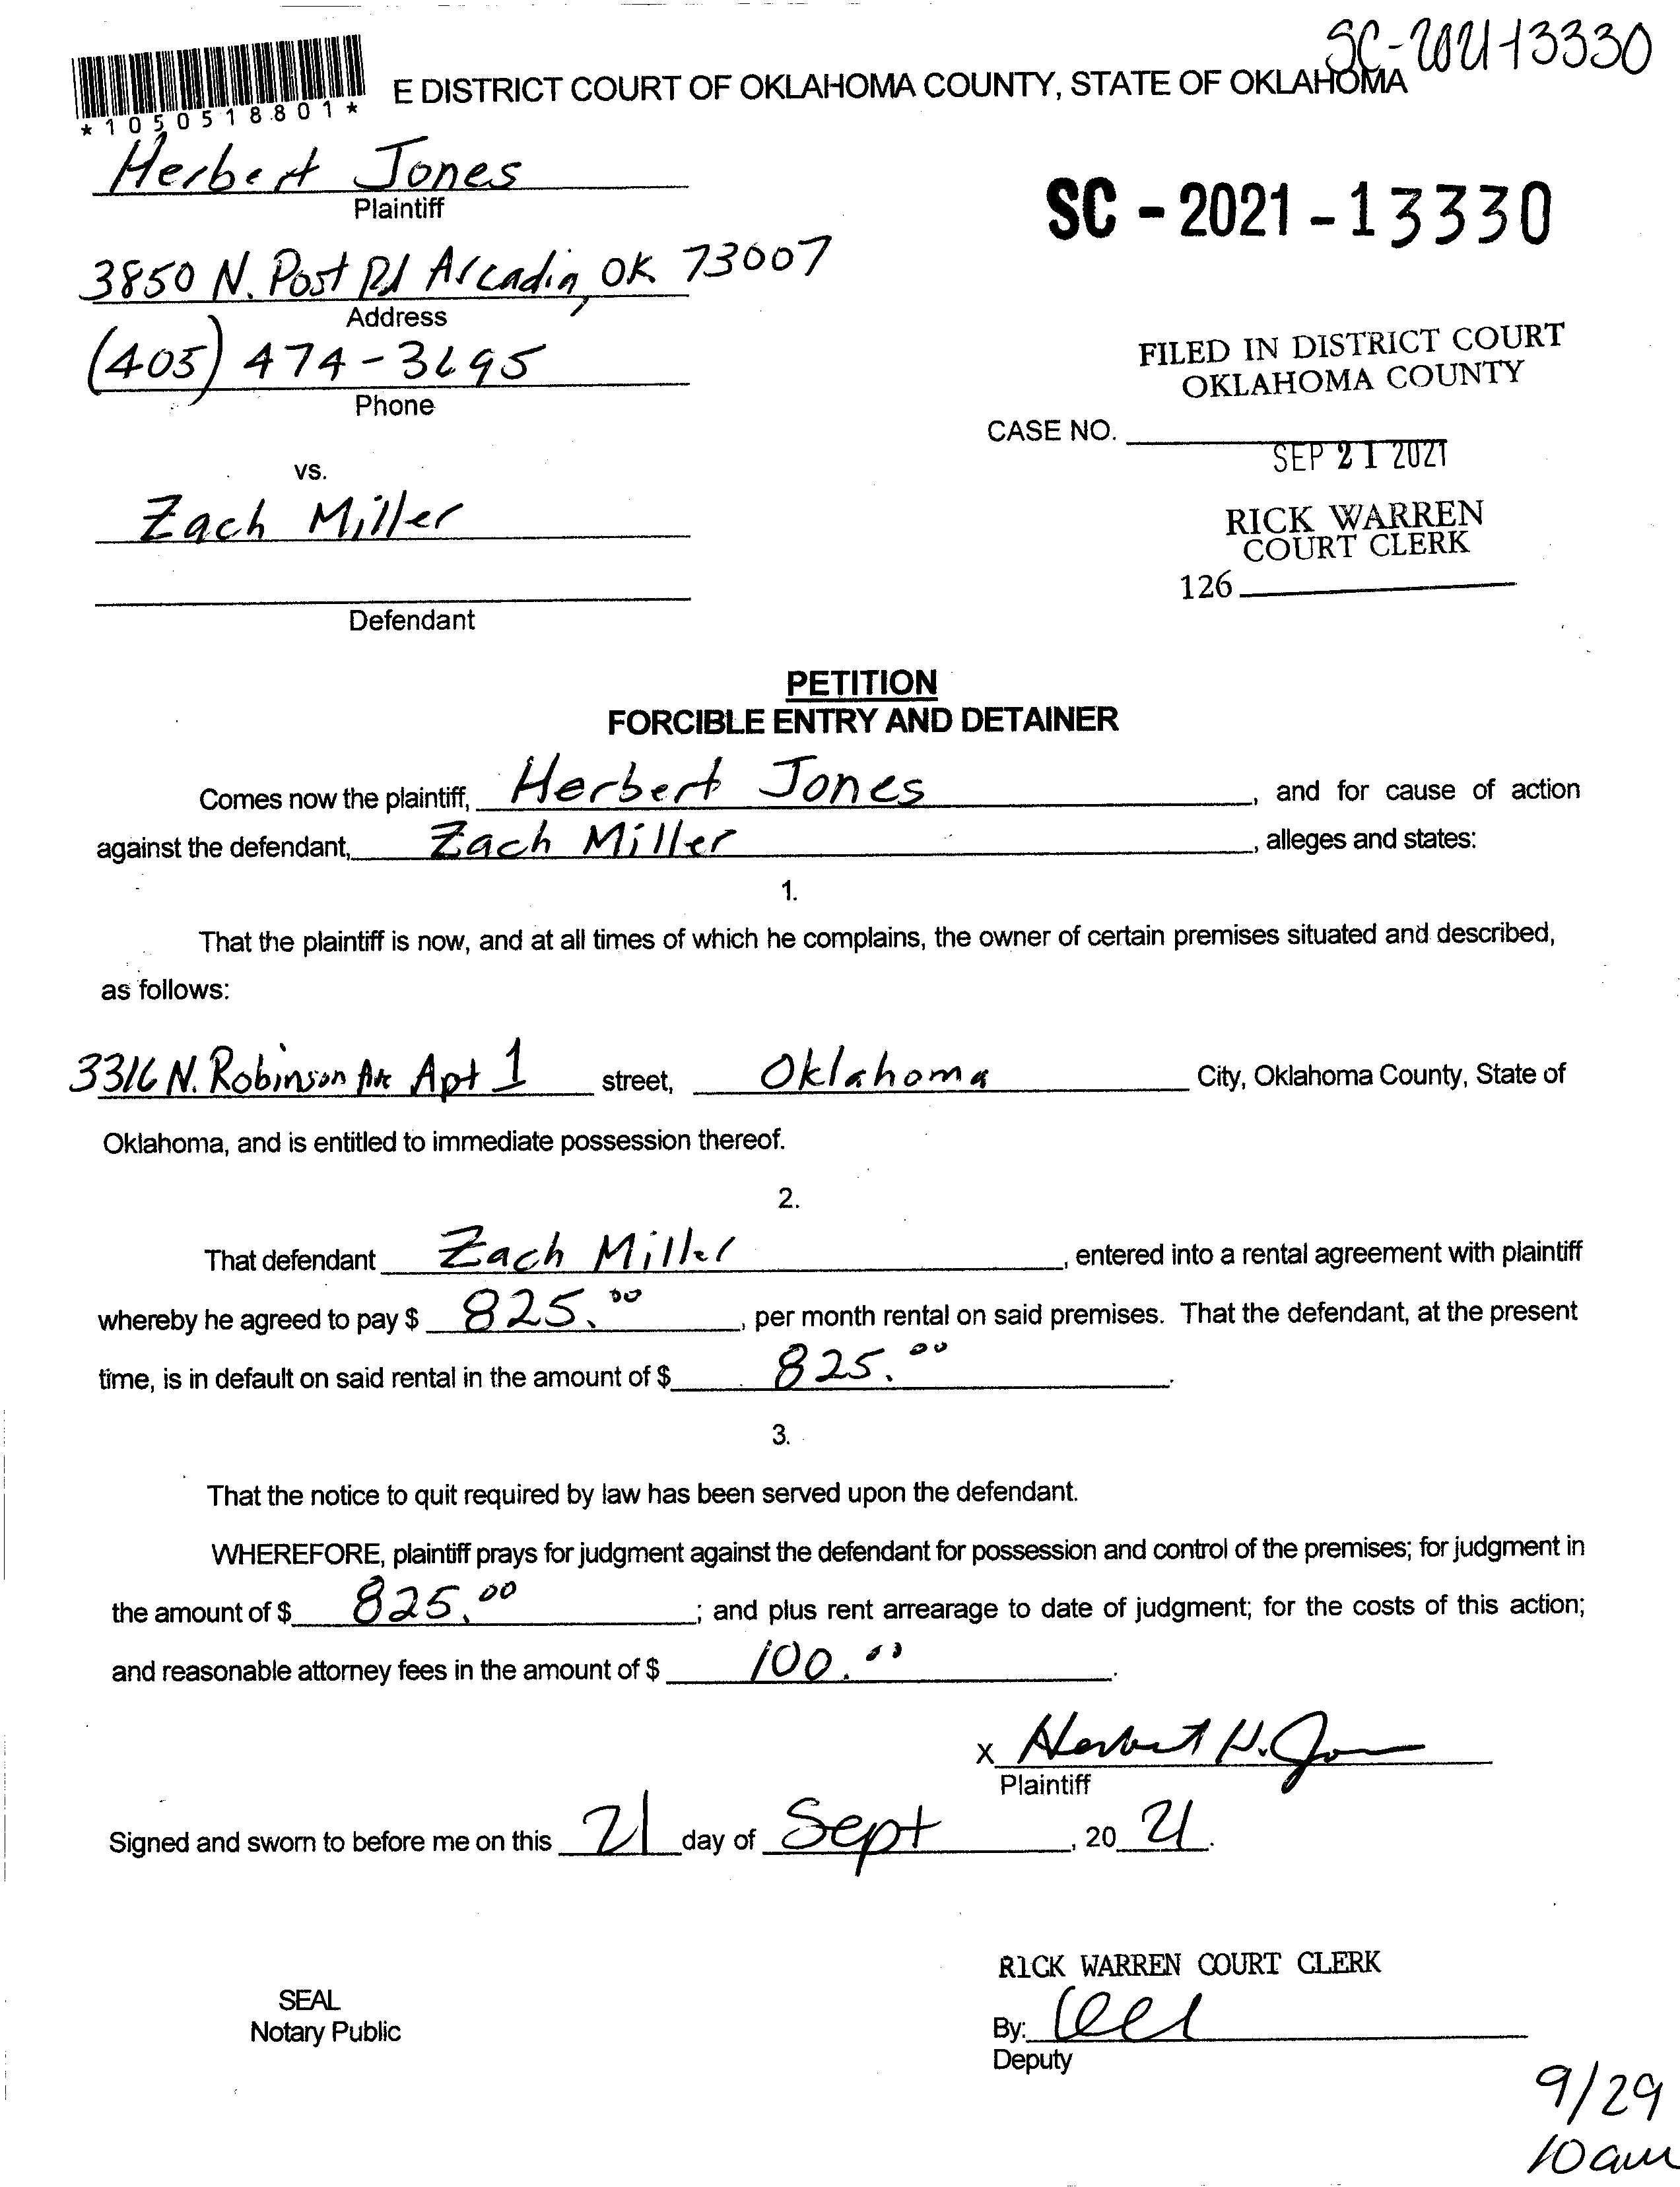 SC-2021-13330
*1050518801*
E DISTRICT COURT OF OKLAHOMA COUNTY, STATE OF OKLAHOMA
Herbert Jones
Plaintiff
SC - 2021 - 13330
3850 N. Post Rd Arcadia, OK 73007
Address
(405) 474-3695
Phone
FILED IN DISTRICT COURT
OKLAHOMA COUNTY
CASE NO.
SEP 21 2021
vs.
Zach Miller
RICK WARREN
COURT CLERK
126
Defendant
PETITION
FORCIBLE ENTRY AND DETAINER
Comes now the plaintiff, Herbert Jones, and for cause of action
against the defendant, Zach Miller, alleges and states:
1.
That the plaintiff is now, and at all times of which he complains, the owner of certain premises situated and described,
as follows:
3316 N. Robinson Ave Apt 1 street, Oklahoma City, Oklahoma County, State of
Oklahoma, and is entitled to immediate possession thereof.
2.
That defendant Zach Miller, entered into a rental agreement with plaintiff
whereby he agreed to pay $ 825.00, per month rental on said premises. That the defendant, at the present
time, is in default on said rental in the amount of $ 825.00.
3.
That the notice to quit required by law has been served upon the defendant.
WHEREFORE, plaintiff prays for judgment against the defendant for possession and control of the premises; for judgment in
the amount of $ 825.00; and plus rent arrearage to date of judgment; for the costs of this action;
and reasonable attorney fees in the amount of $ 100.00.
x Herbert H. Jones
Plaintiff
Signed and sworn to before me on this 21 day of Sept, 20 21.
R1CK WARREN COURT CLERK
SEAL
Notary Public
By:
Deputy
9/29
10am